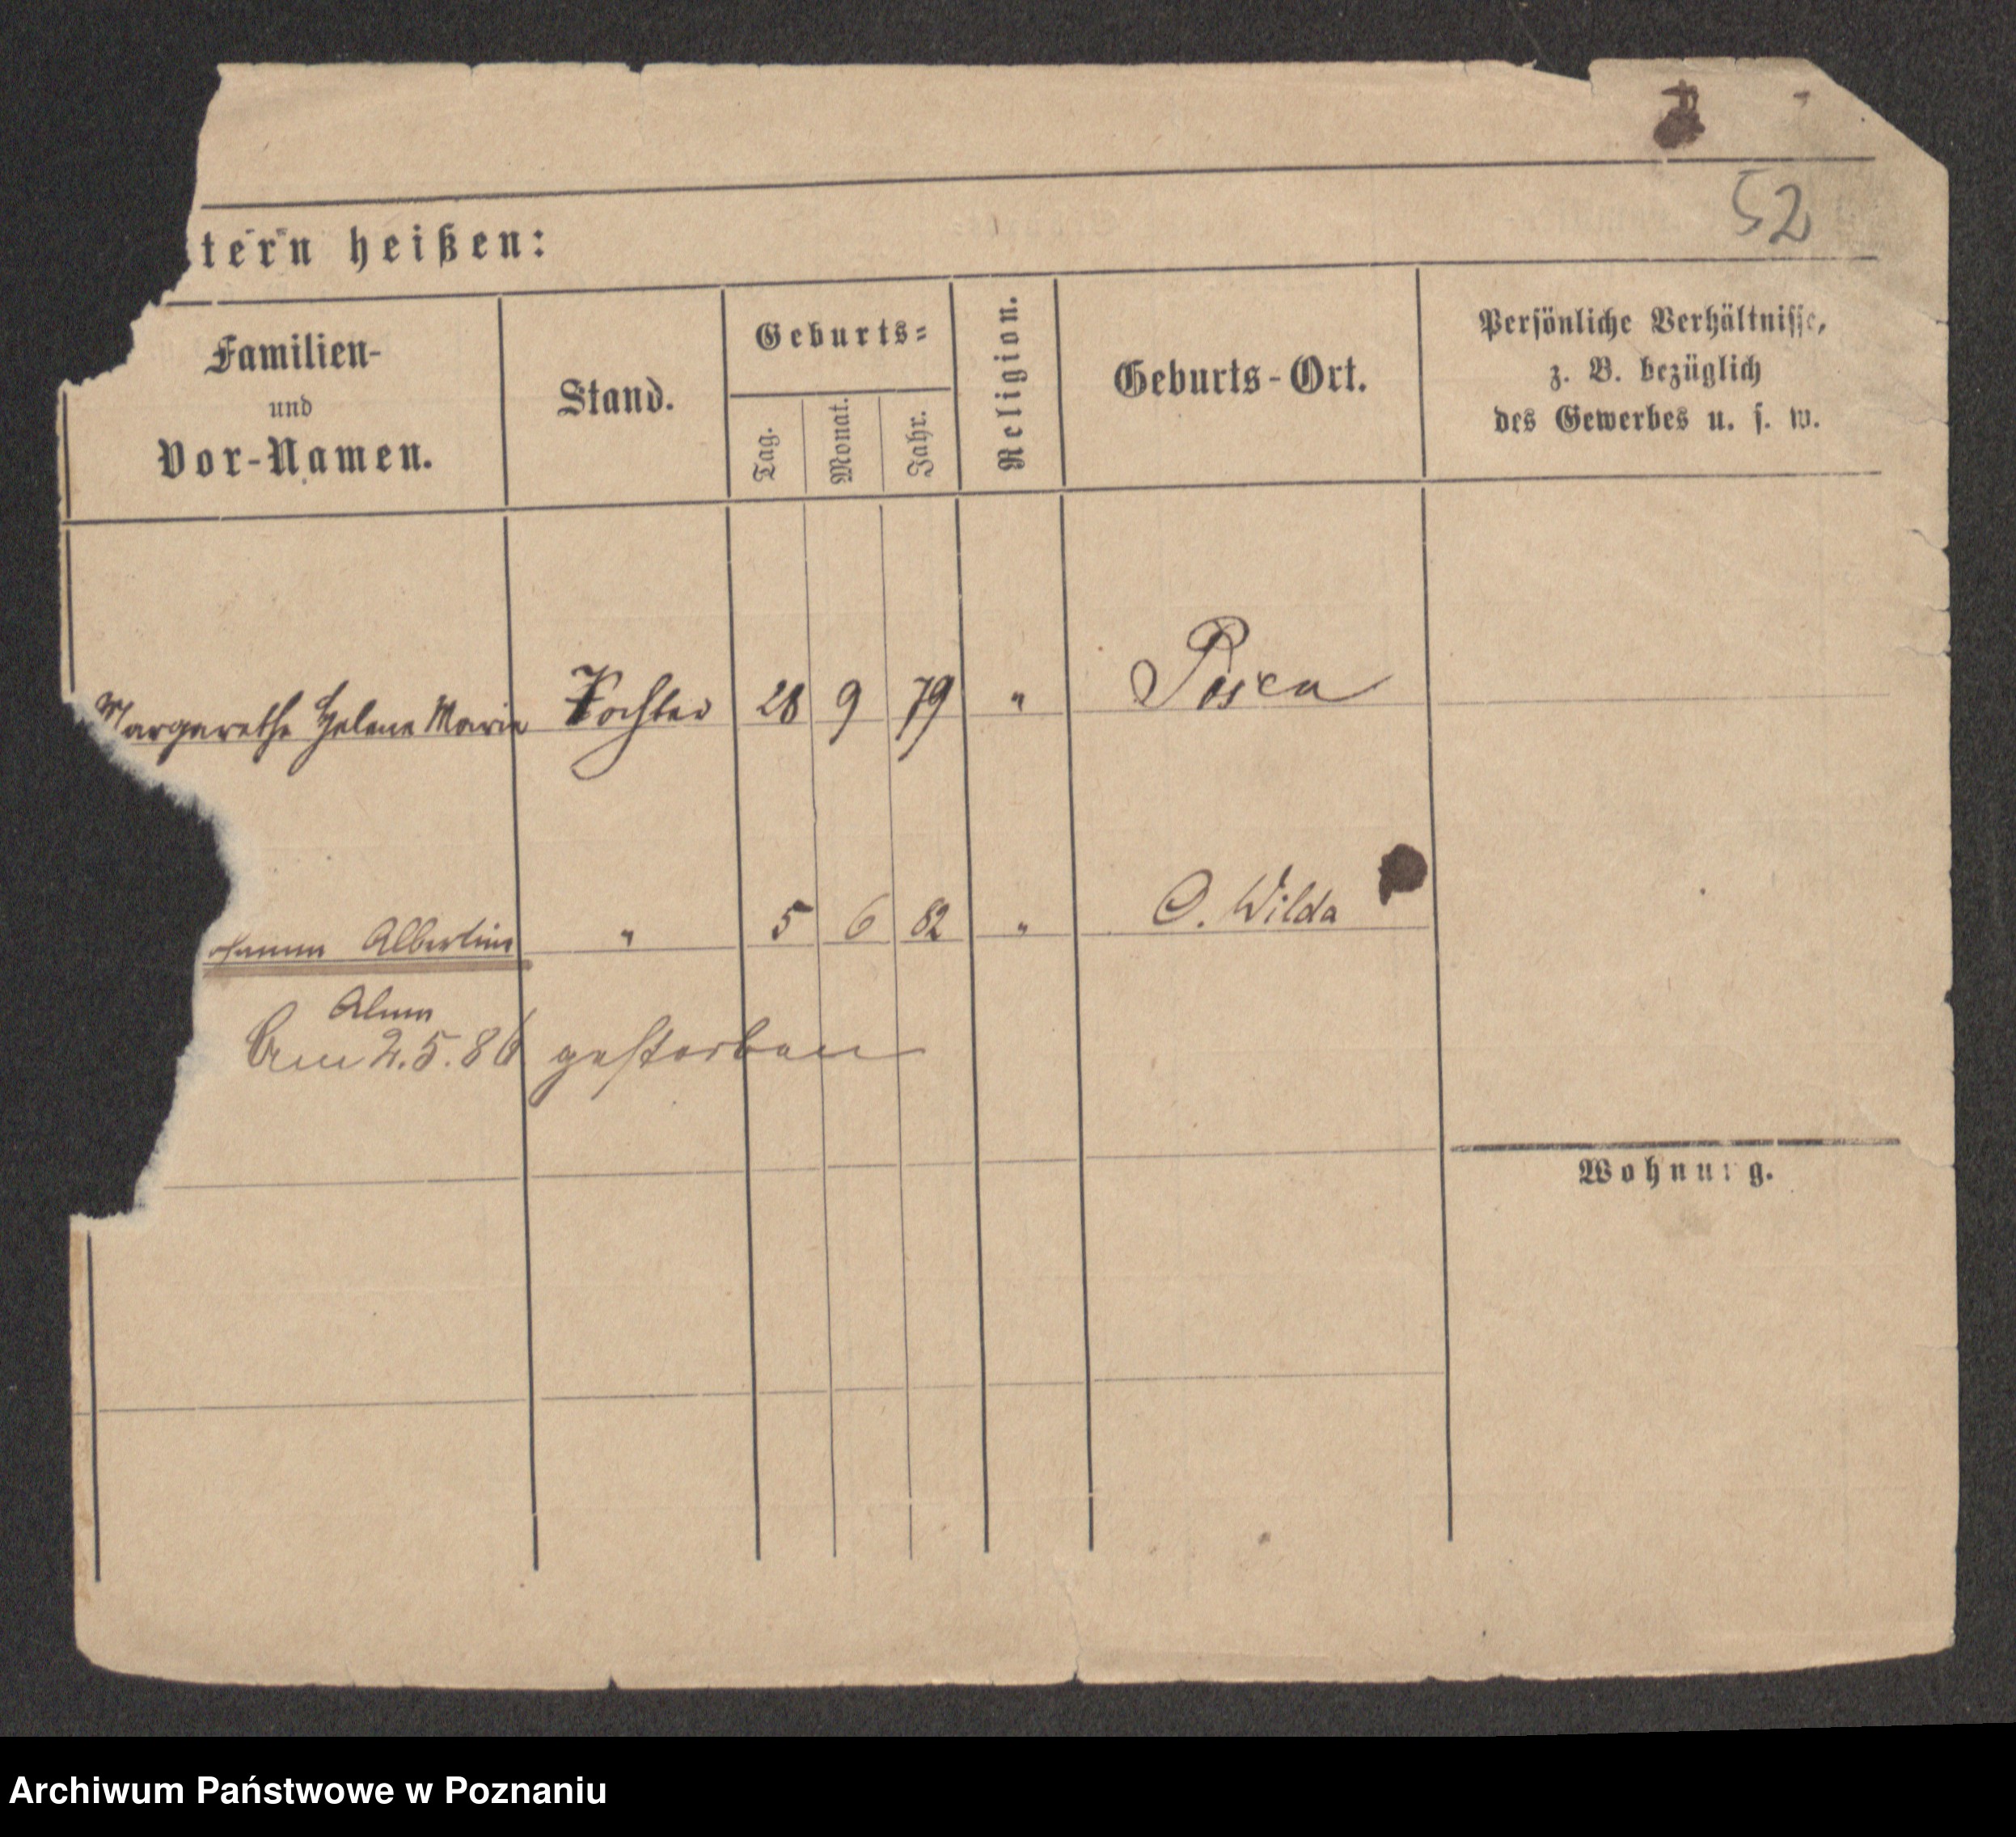 52
tern heißen:
Familien-
und
Vor-Namen.
Stand.
Geburts=
Tag.
Monat.
Jahr.
Religion.
Geburts-Ort.
Persönliche Verhältnisse,
z. B. bezüglich
des Gewerbes u. s. w.
Margarethe Helene Marie Tochter 28 9 79 " Posen
Albertine " 5 6 82 " O. Wilda
Am 2.5.86 gestorben
Wohnung.
Archiwum Państwowe w Poznaniu